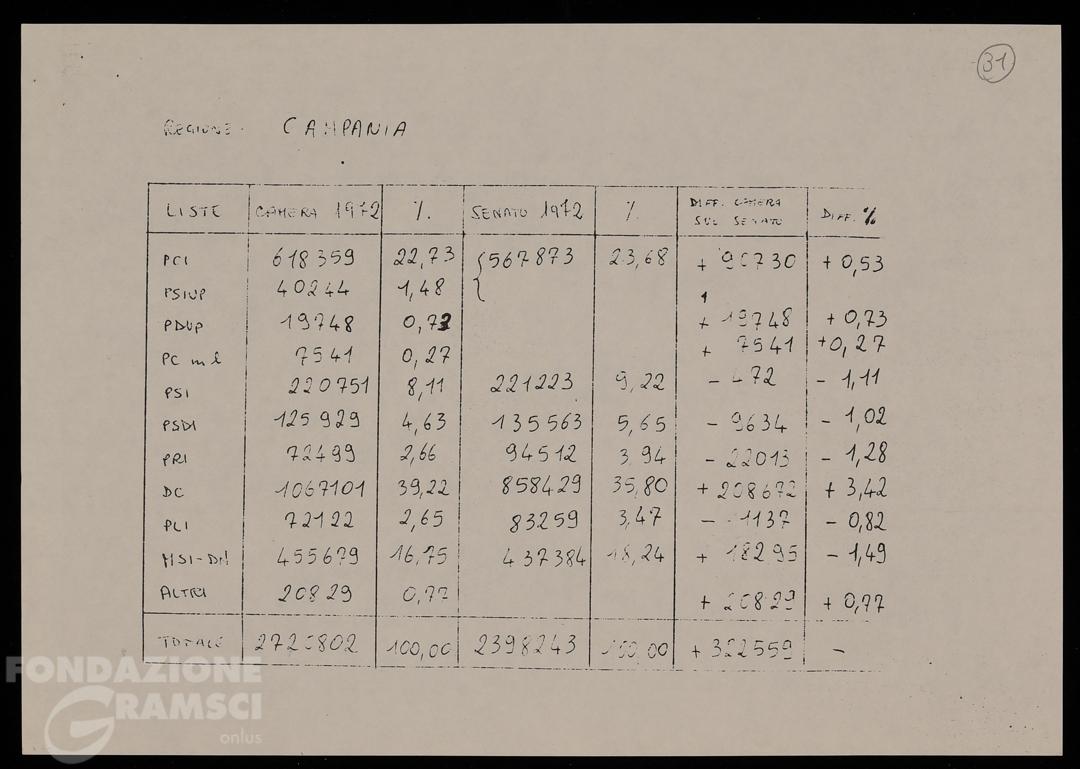 31
REGIONE. CAMPANIA
LISTE CAMERA 1972 % SENATO 1972 % DIFF. CAMERA SUL SENATO DIFF. %
PCI 618359 22,73 567873 23,68 + 90730 + 0,53
PSIUP 40244 1,48
PDUP 19748 0,73 + 19748 + 0,73
PC ml 7541 0,27 + 7541 +0,27
PSI 220751 8,11 221223 9,22 - 472 - 1,11
PSDI 125929 4,63 135563 5,65 - 9634 - 1,02
PRI 72499 2,66 94512 3,94 - 22013 - 1,28
DC 1067101 39,22 858429 35,80 + 208672 + 3,42
PLI 72122 2,65 83259 3,47 - 1137 - 0,82
MSI-DN 455679 16,75 437384 18,24 + 18295 - 1,49
ALTRI 20829 0,77 + 20829 + 0,77
TOTALE 2720802 100,00 2398243 100,00 + 322559 -
FONDAZIONE
GRAMSCI
onlus